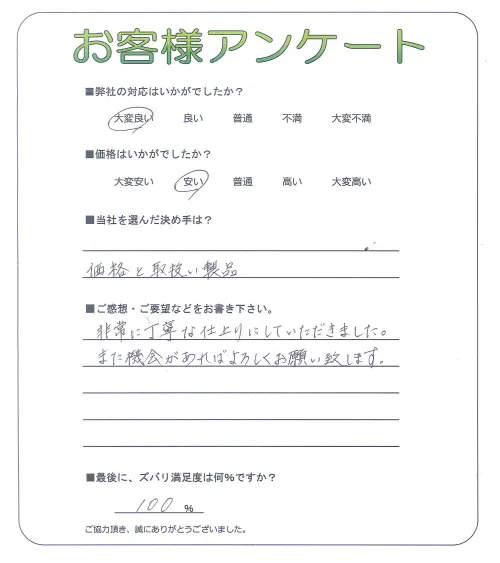 お客様アンケート
■弊社の対応はいかがでしたか？
大変良い 良い 普通 不満 大変不満
■価格はいかがでしたか？
大変安い 安い 普通 高い 大変高い
■当社を選んだ決め手は？
価格と取扱い製品
■ご感想・ご要望などをお書き下さい。
非常に丁寧な仕上りにしていただきました。
また機会があればよろしくお願い致します。
■最後に、ズバリ満足度は何％ですか？
100 %
ご協力頂き、誠にありがとうございました。